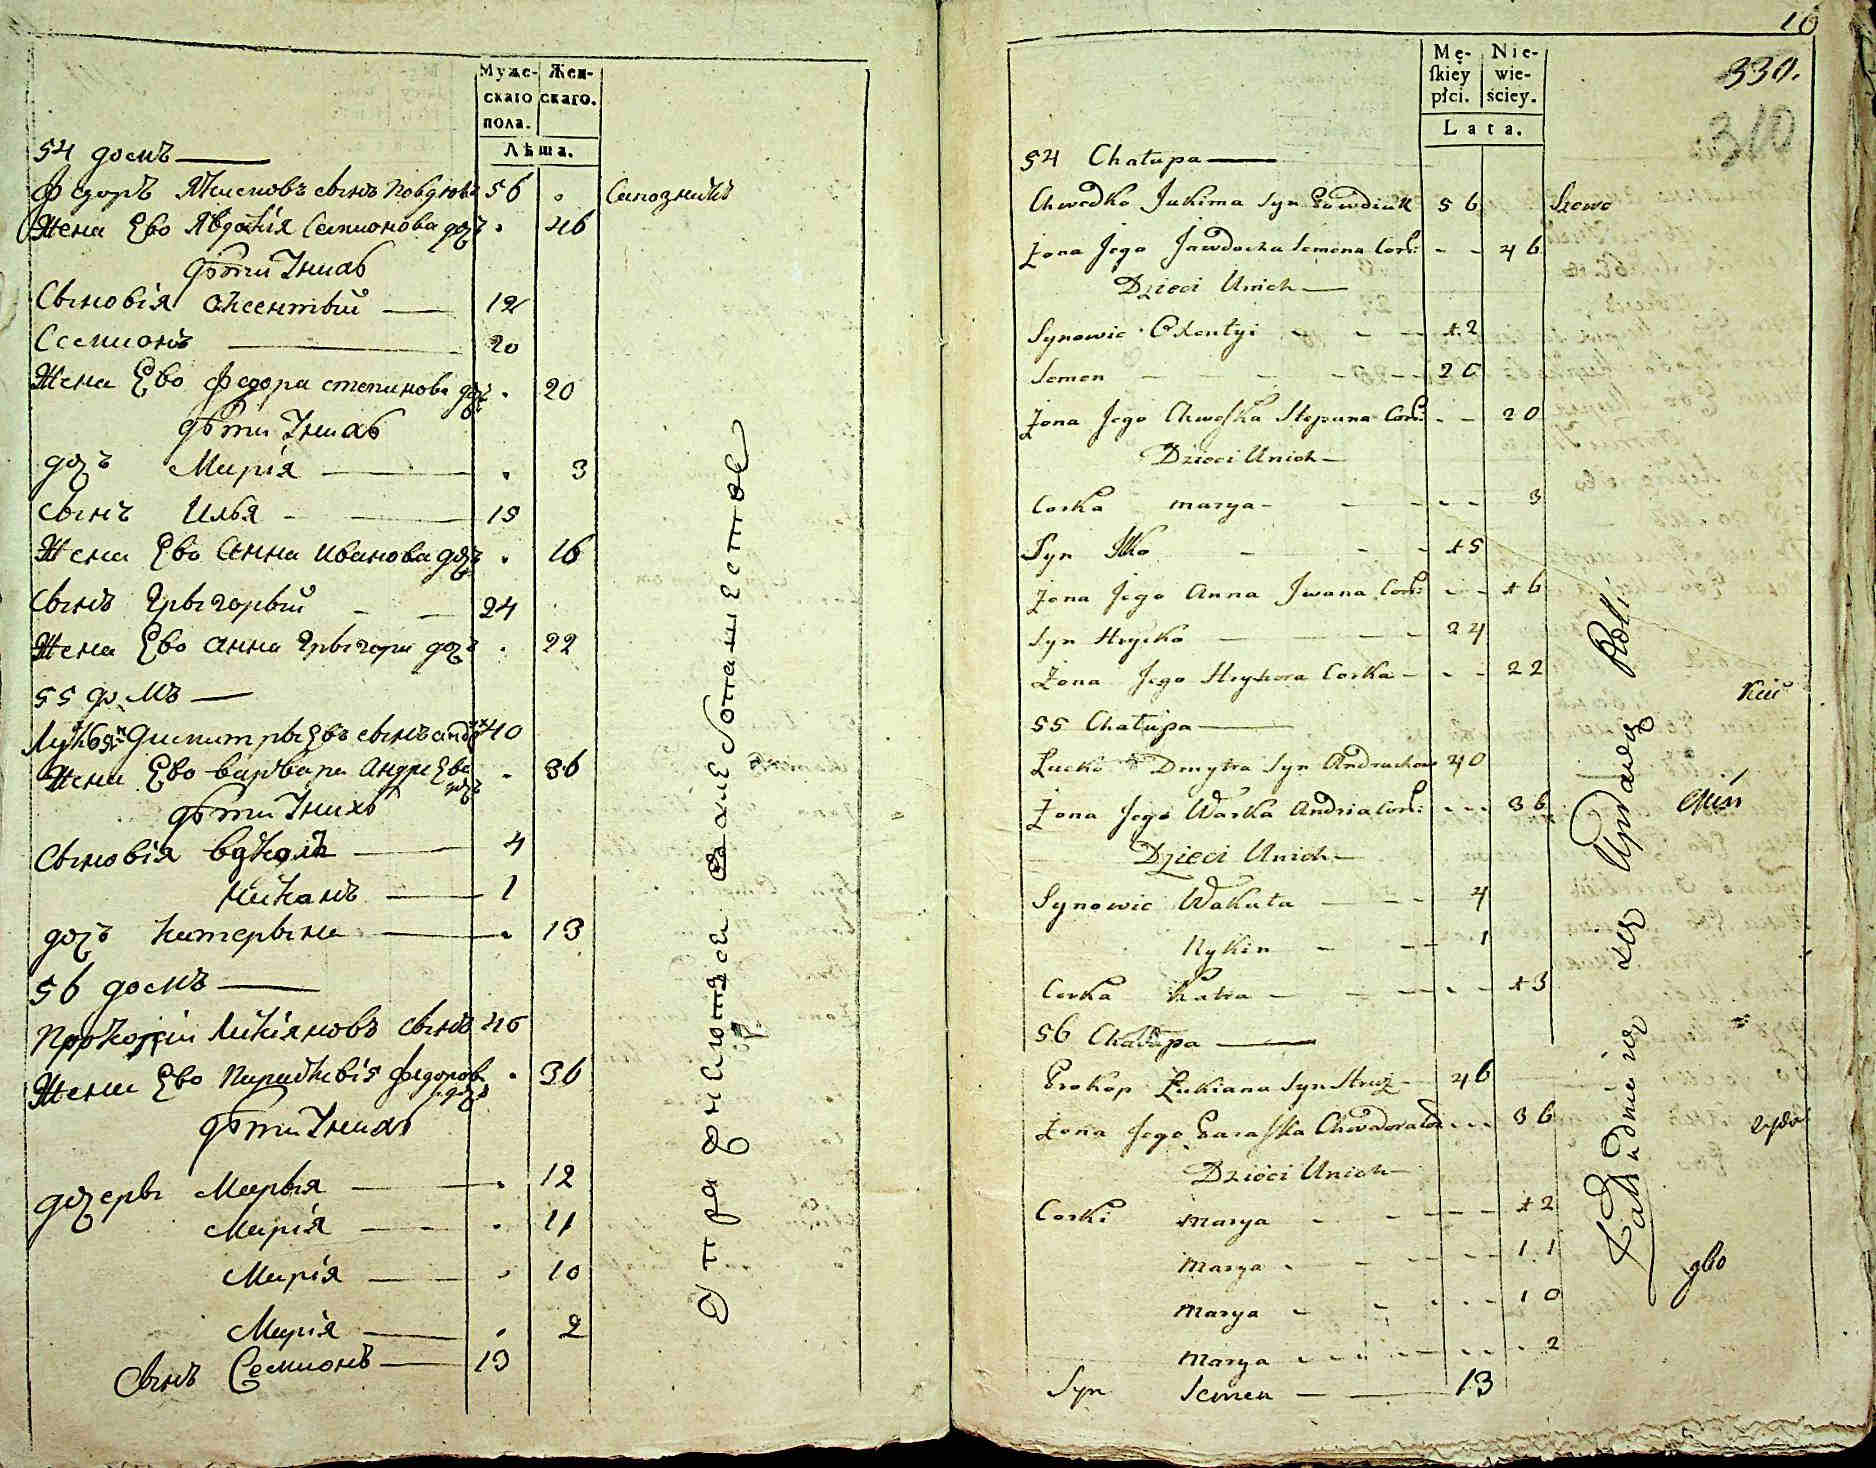 Муже- Жен-
скаго скаго.
пола.
Лѣта.
54 домъ
Федоръ Якимовъ сынъ Повдюкъ 56 Сапожникъ
Жена Ево Явдокія Семионова дочъ 46
дѣти Унихъ
Сыновія Оксентый 12
Семионъ 20
Жена Ево Федора степанова дочъ 20
дѣти Унихъ
дочъ Марія 3
Сынъ Илья 15
Жена Ево Анна Иванова дочъ 16
Сынъ Грыгорый 24
Жена Ево Анна Грыгори дочъ 22
55 домъ
Лукъян Дмитрыевъ сынъ 40
Жена Ево Варвара Андреева дочъ 36
дѣти Унихъ
Сыновія 4
Никанъ 1
дочъ Катерына 13
56 домъ
Прокопій Лукіяновъ сынъ 46
Жена Ево Параскевія Федоров. дочъ 36
дѣти Унихъ
дочеры Марыя 12
Марія 11
Марія 10
Марія 2
Сынъ Семионъ 13
10
330.
310
Mę- Nie-
ſkiey wie-
płci. ściey.
Lata.
54 Chałupa
Chwedko Jakima Syn Powdiuk 56 Szewc
Żona Jego Jawdocha Semena Cork: 46
Dzieci Unich
Synowie Oxentyi 12
Semen 20
Żona Jego Chweſka Stepana Cork: 20
Dzieci Unich
Corka Marya 3
Syn Ilko 15
Żona Jego Anna Jwana Cork: 16
Syn Hrycko 24
Żona Jego Hryhora Corka 22
55 Chałupa
Łucko Dmytra Syn 40
Żona Jego Warka Andria Cork: 36
Dzieci Unich
Synowie Wakuła 4
Nykin 1
Corka Katra 13
56 Chałupa
Prokop Łukiana Syn 46
Żona Jego Paraſka Chwedora Cor 36
Dzieci Unich
Corki Marya 12
Marya 11
Marya 10
Marya 2
Syn Semen 13
Zatrudnia się Uprawą Roli